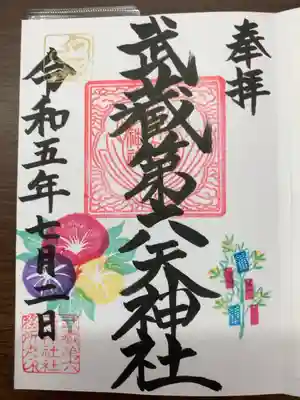 奉拝
武蔵第六天神社
令和五年七月二日